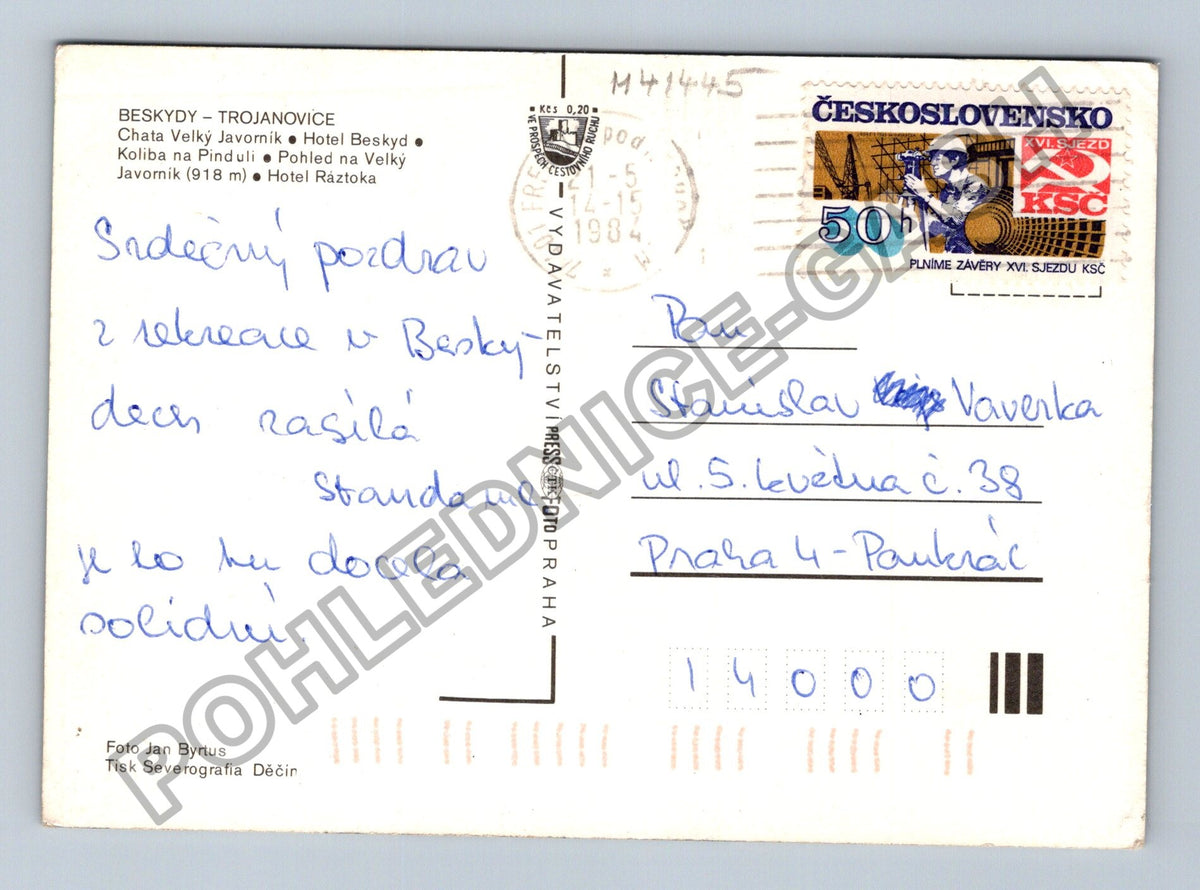 BESKYDY – TROJANOVICE
Chata Velký Javorník ● Hotel Beskyd ●
Koliba na Pinduli ● Pohled na Velký
Javorník (918 m) ● Hotel Ráztoka
Srdečný pozdrav
z rekreace v Beský-
dech zasílá
Standa
je to tu docela
solidní.
Foto Jan Byrtus
Tisk Severografia Děčín
Kčs 0,20
VE PROSPĚCH CESTOVNÍHO RUCHU
VYDAVATELSTVÍ PRESSFOTO PRAHA
ČTK
M41445
pod
21.-5.
14-15
1984
ČESKOSLOVENSKO
XVI. SJEZD
KSČ
50h
PLNÍME ZÁVĚRY XVI. SJEZDU KSČ
Pan
Stanislav Vaverka
ul. 5. května č. 38
Praha 4 - Pankrác
14000
POHLEDNICE-GALIJ